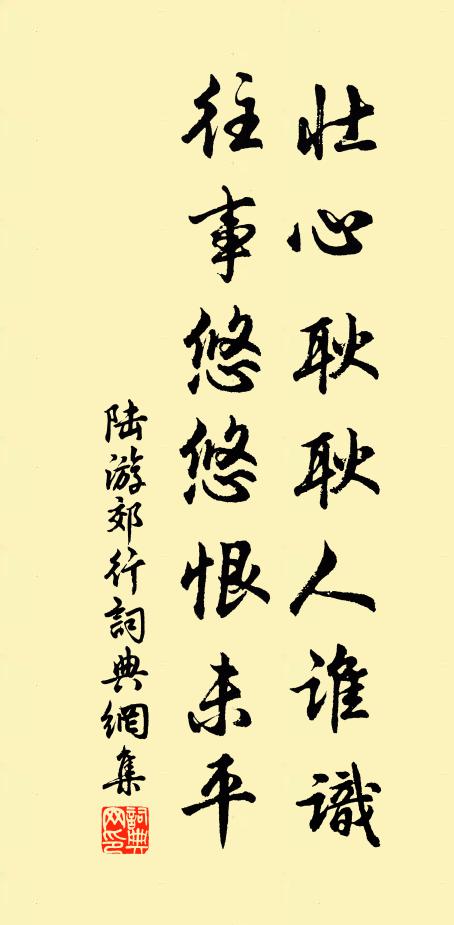 壮心耿耿人谁識
往事悠悠恨未平
陆游郊行詞典網集
詞典网印